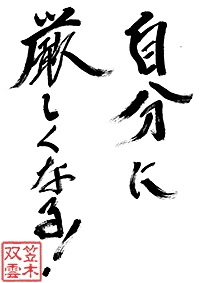 自分に
厳しくなる!
笠木
双雲